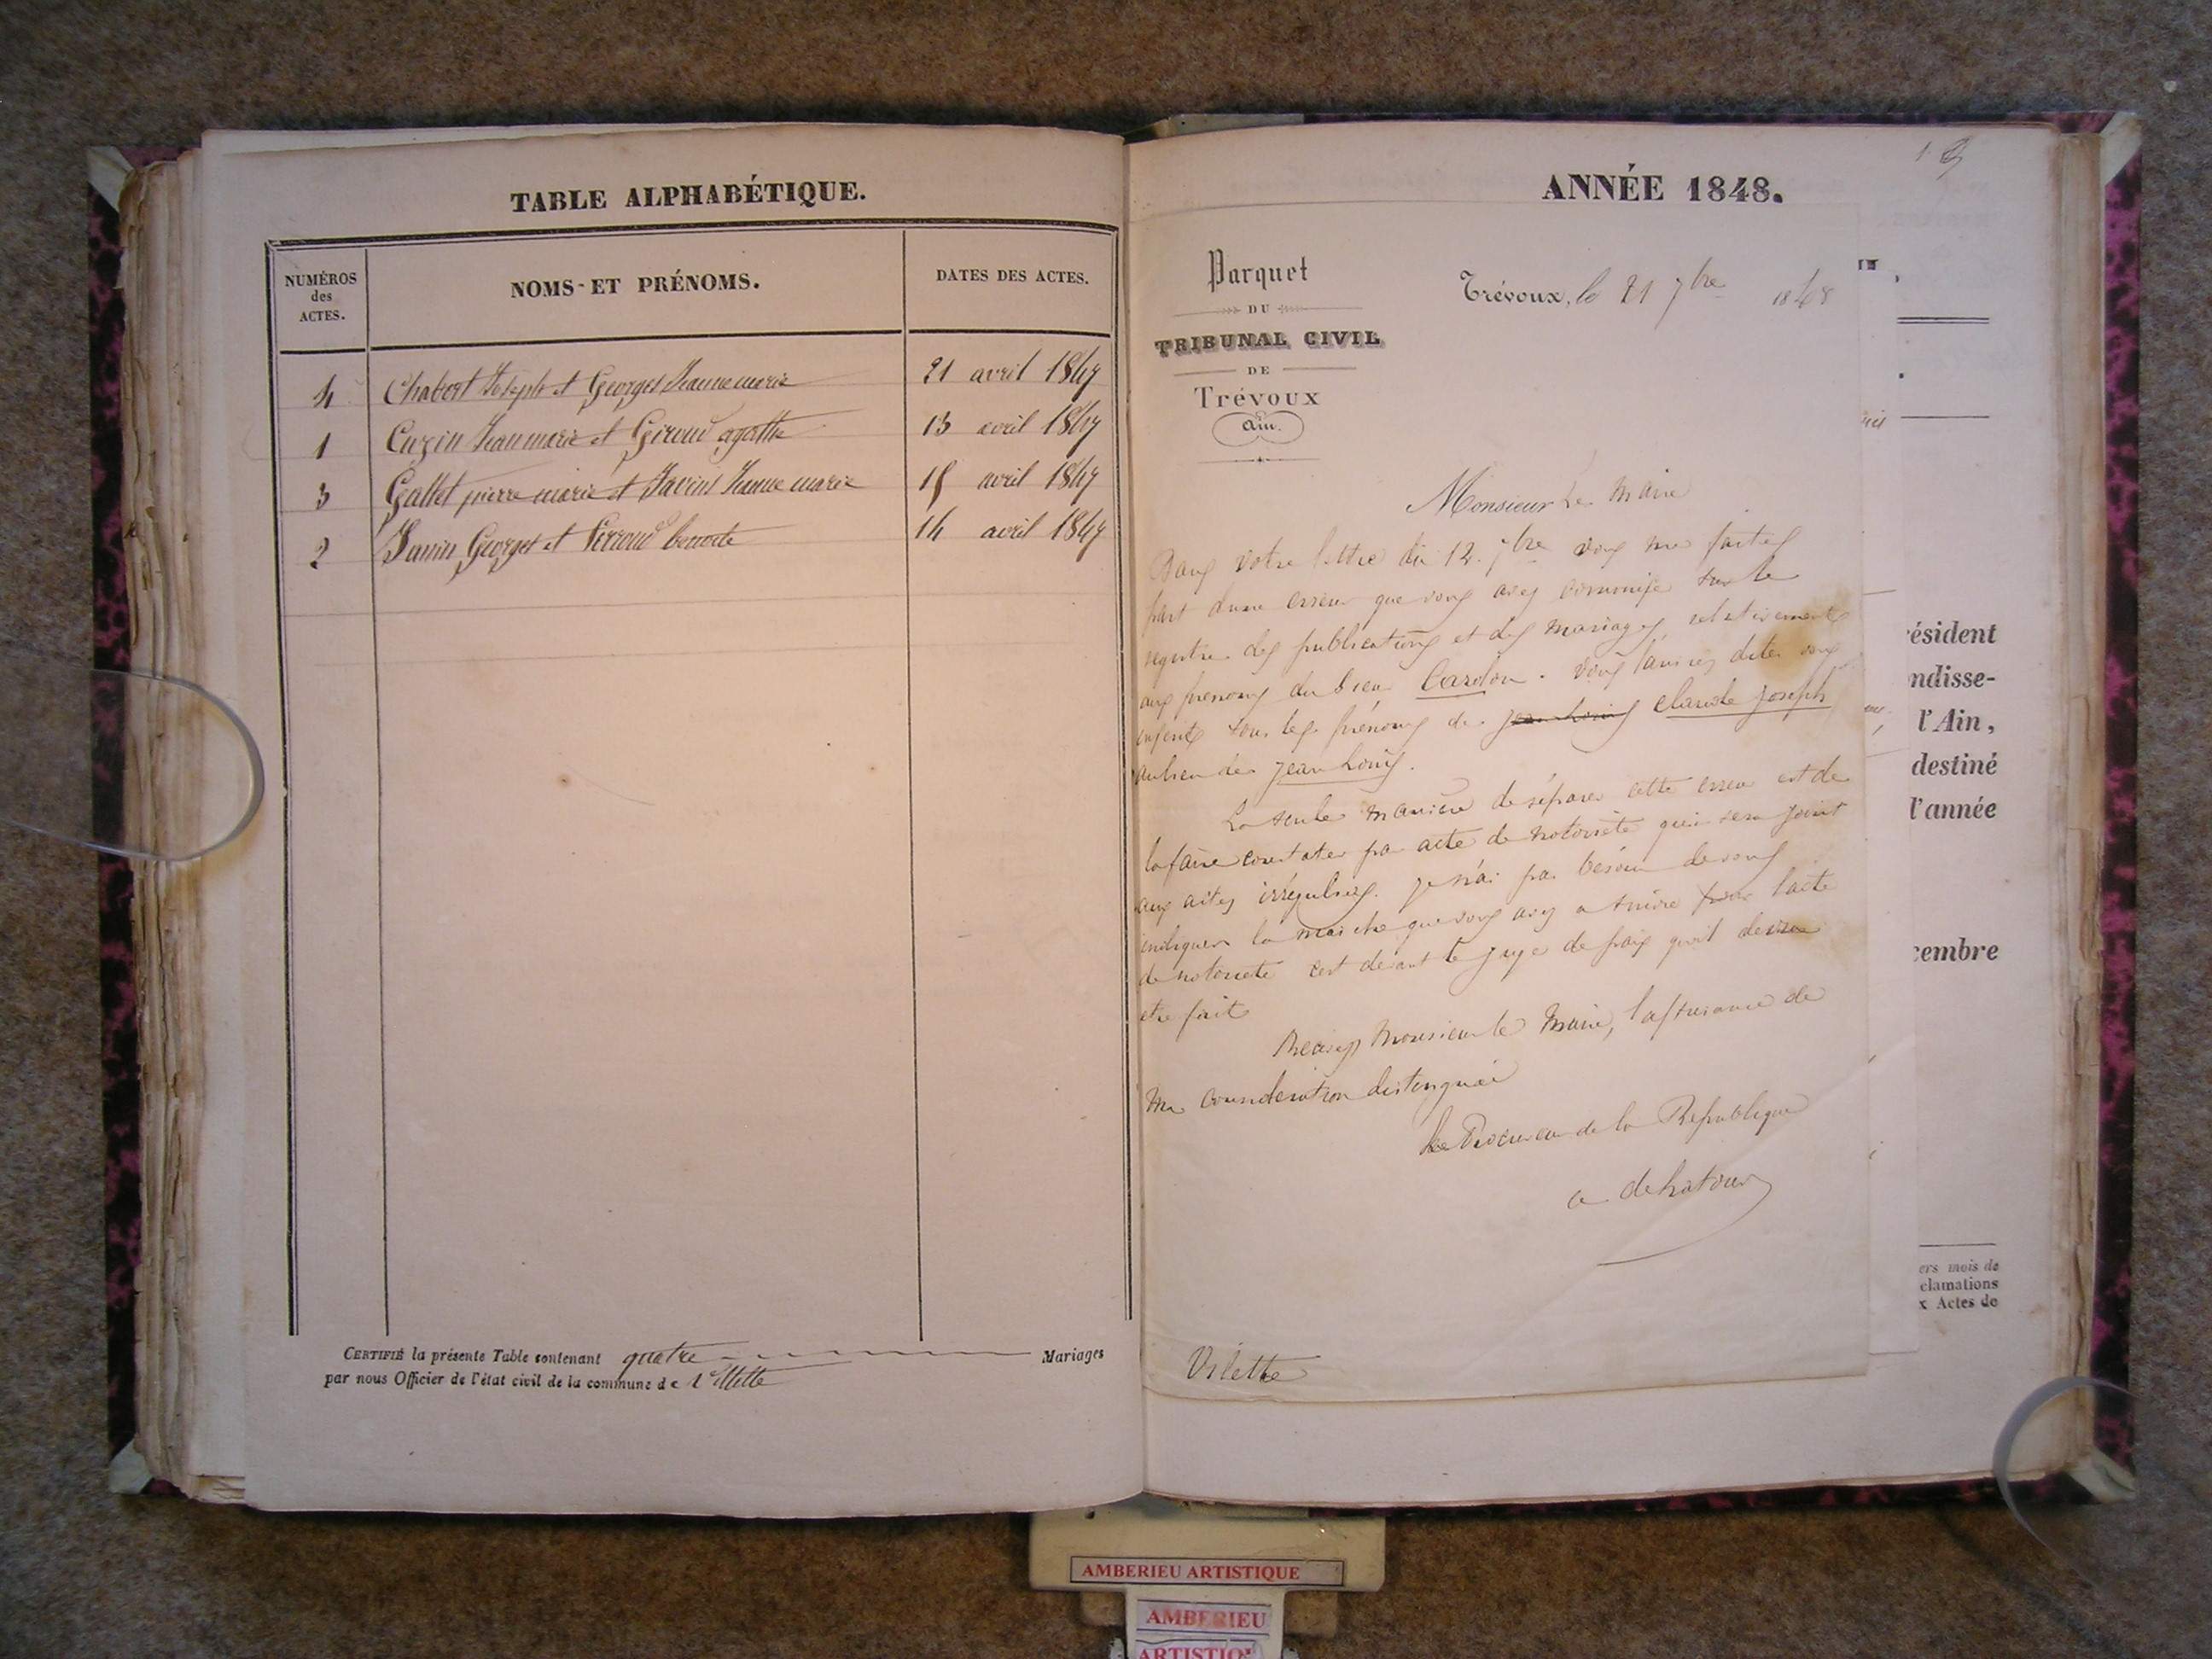 TABLE ALPHABÉTIQUE.
NUMÉROS
des
ACTES.
NOMS ET PRÉNOMS.
DATES DES ACTES.
4 Chabert Joseph et Georges Jeanne marie 21 avril 1847
1 Cuzin Jean marie et Giroud agathe 13 avril 1847
3 Gallet pierre marie et Jeanne marie 15 avril 1847
2 Georges et 14 avril 1847
CERTIFIÉ la présente Table contenant quatre Mariages
par nous Officier de l'état civil de la commune de Villette
ANNÉE 1848.
Parquet
DU
TRIBUNAL CIVIL
DE
Trévoux
Ain.
Trévoux, le 21 7bre 1848
Monsieur Le Maire
Dans votre lettre du 12. 7bre vous me faites
part d'une erreur que vous avez commise sur le
registre des publications et des mariages, relativement
aux prénoms du Sieur Cardon. Vous l'auriez dites vous
inscrit sous les prénoms de jean Louis claude joseph
au lieu de jean Louis.
La seule manière de réparer cette erreur est de
la faire constater par acte de notoriété qui sera joint
aux actes irréguliers. je n'ai pas besoin de vous
indiquer la marche que vous avez a suivre pour l'acte
de notoriété c'est devant le juge de paix qu'il devra
etre fait
Recevez Monsieur le Maire, l'assurance de
ma consideration distinguée
Le Procureur de la Republique
Vilette
ésident
ndisse-
l'Ain,
destiné
l'année
cembre
ers mois de
clamations
x Actes de
AMBERIEU ARTISTIQUE
AMBERIEU
ARTISTIQ